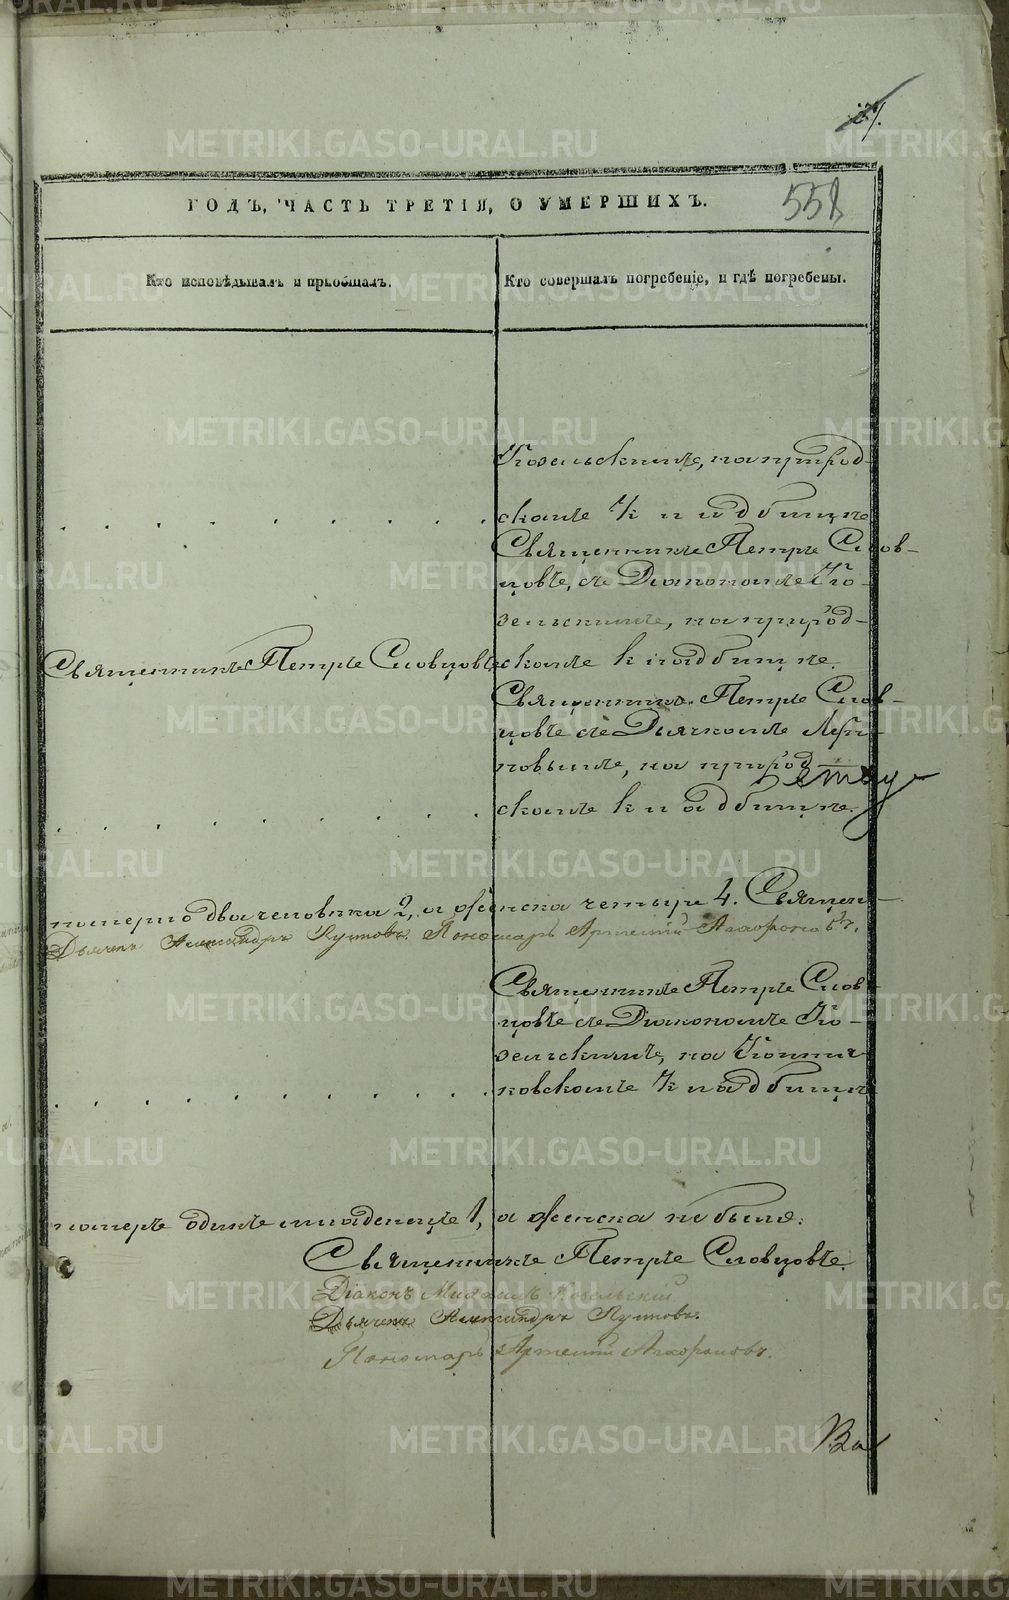 558
ГОДЪ, ЧАСТЬ ТРЕТІЯ, О УМЕРШИХЪ.
Кто исповѣдывалъ и пріобщалъ.
Кто совершалъ погребеніе, и гдѣ погребены.
Козельскимъ, на приход-
скомъ кладбищѣ
Священникъ Петръ Слов-
цовъ, съ Діакономъ Ко-
зельскимъ, на приход-
Священникъ Петръ Словцовъ
скомъ кладбищѣ.
Священникъ Петръ Слов-
цовъ съ Дьячкомъ
на приход
скомъ кладбищѣ.
померло два человѣка 2, а женска четыре 4. Священ-
Дьячекъ Александръ Пономарь Артемій Агафоновъ.
Священникъ Петръ Слов-
цовъ съ Діакономъ Ко-
зельскимъ, на
ковскомъ кладбищѣ
померъ одинъ младенецъ 1, а женска не было.
Священникъ Петръ Словцовъ.
Діаконъ Михаилъ Козельскій
Дьячекъ Александръ
Пономарь Артемій Агафоновъ.
METRIKI.GASO-URAL.RU